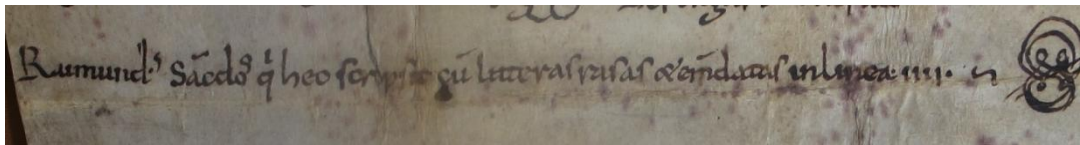 Raimund⁹ Sac̄dos q̄ heo scripsit cū litteras rasas et em̄datas in linea. IIII.